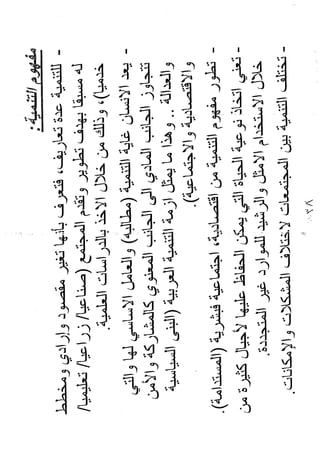 مفهوم التنمية:
- للتنمية عدة تعاريف، فتعرف بأنها تغير مقصود وإرادي ومخطط
له مسبقا بهدف تطوير وتقدم المجتمع (صناعيا/ زراعيا/ تعليميا/
خدميا)، وذلك من خلال الاخذ بالدراسات العلمية.
- يعد الانسان غاية التنمية (مطالبه) والعامل الاساسي لها والتي
تتجاوز الجانب المادي الى الجانب المعنوي كالمشاركة والأمن
والعدالة .. وهذا ما يمثل ازمة التنمية العربية (البنى السياسية
والاقتصادية والاجتماعية).
- تطور مفهوم التنمية من اقتصادية، اجتماعية فبشرية (المستدامة).
- تعني اتخاذ نوعية الحياة التي يمكن الحفاظ عليها لأجيال كثيرة من
خلال الاستخدام الامثل والرشيد للموارد غير المتجددة.
- تختلف التنمية بين المجتمعات لاختلاف المشكلات والإمكانات.
٣٨